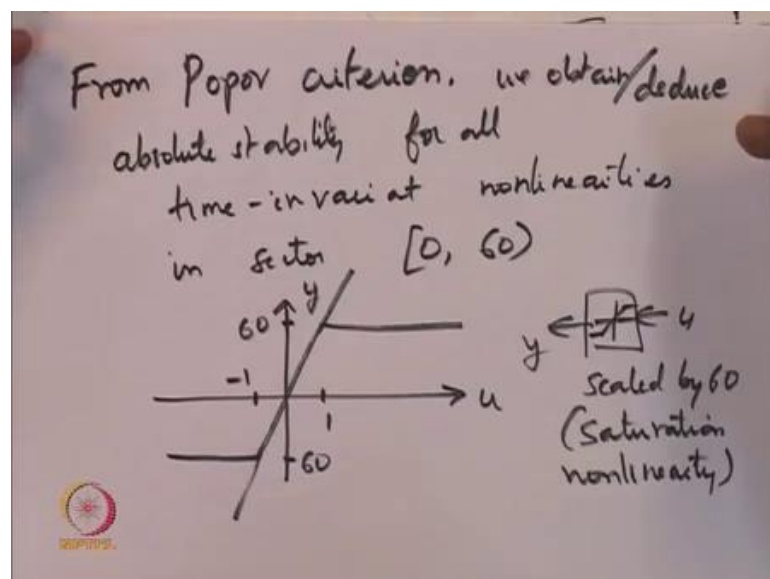 From Popov criterion. we obtain/deduce
absolute stability for all
time-invariat nonlinearities
in sector [0, 60)
y
60
-1
u
1
-60
y u
scaled by 60
(saturation
nonlinearity)
NPTEL